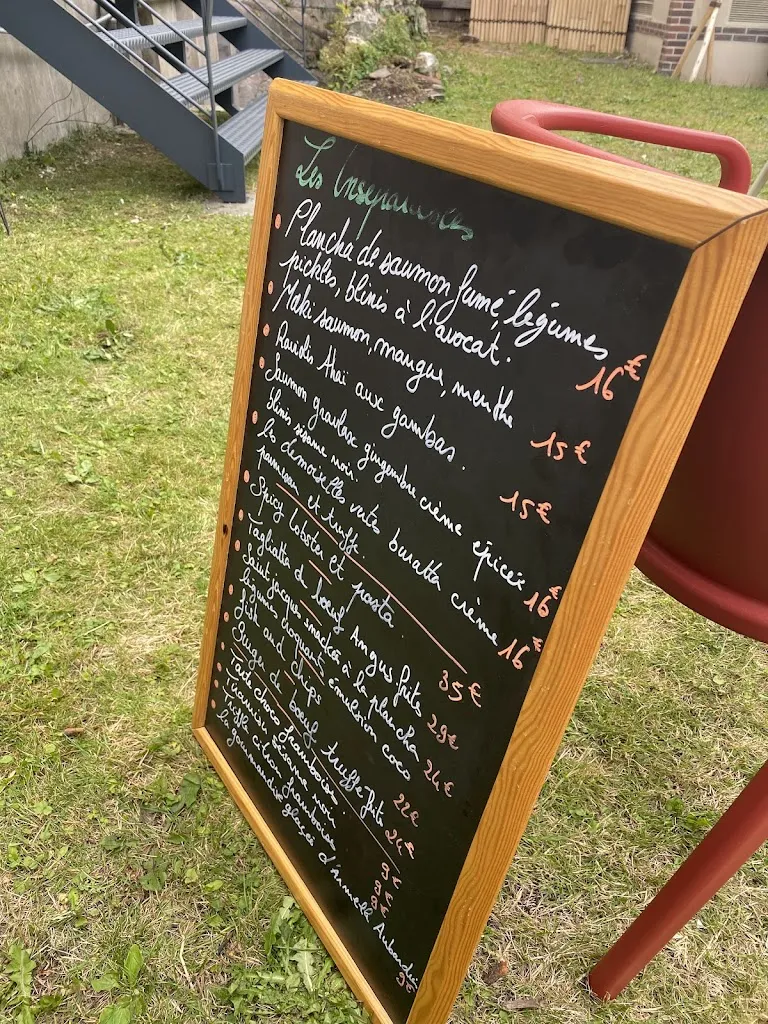 Les Inséparables
Plancha de saumon fumé, légumes
pickles, blinis à l'avocat. 16€
Maki saumon, mangue, menthe 15€
Raviolis thaï aux gambas. 15€
Saumon gravlax gingembre crème épicée
blinis sésame noir. 16€
les demoiselles vertes buratta crème
parmesan et truffe. 16€
Spicy lobster et pasta 35€
Tagliatta de boeuf Angus frites 29€
Saint jacques snackés à la plancha
légumes croquants émulsion coco 24€
fish and chips 22€
Burger de boeuf truffe frites 24€
Tarte choco framboises. 9€
Tiramisu sésame noir. 9€
Truffe citron framboise 9€
la gourmandise glacée d'Armelle 9€